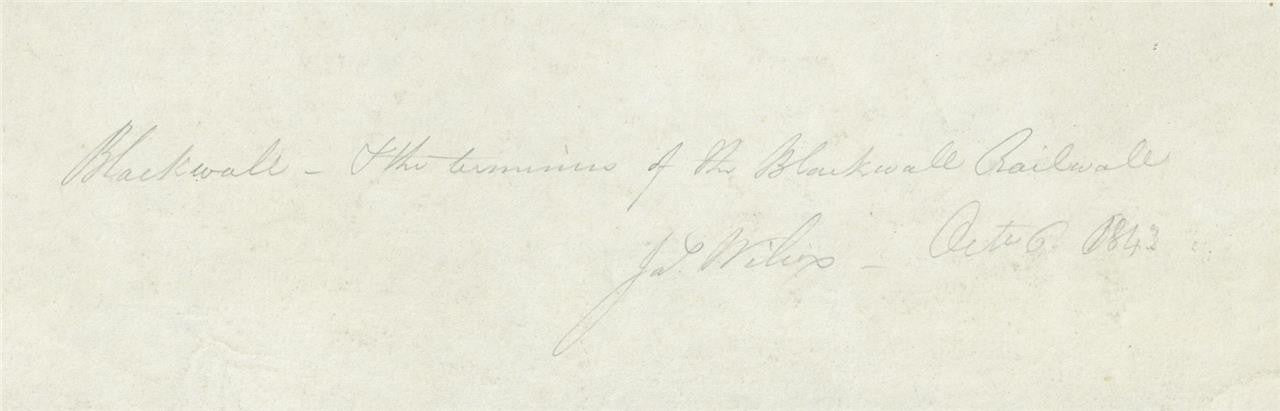 Blackwall – & the terminus of the Blackwall Railwall
Jas. Wilcox – Octr. 6. 1843